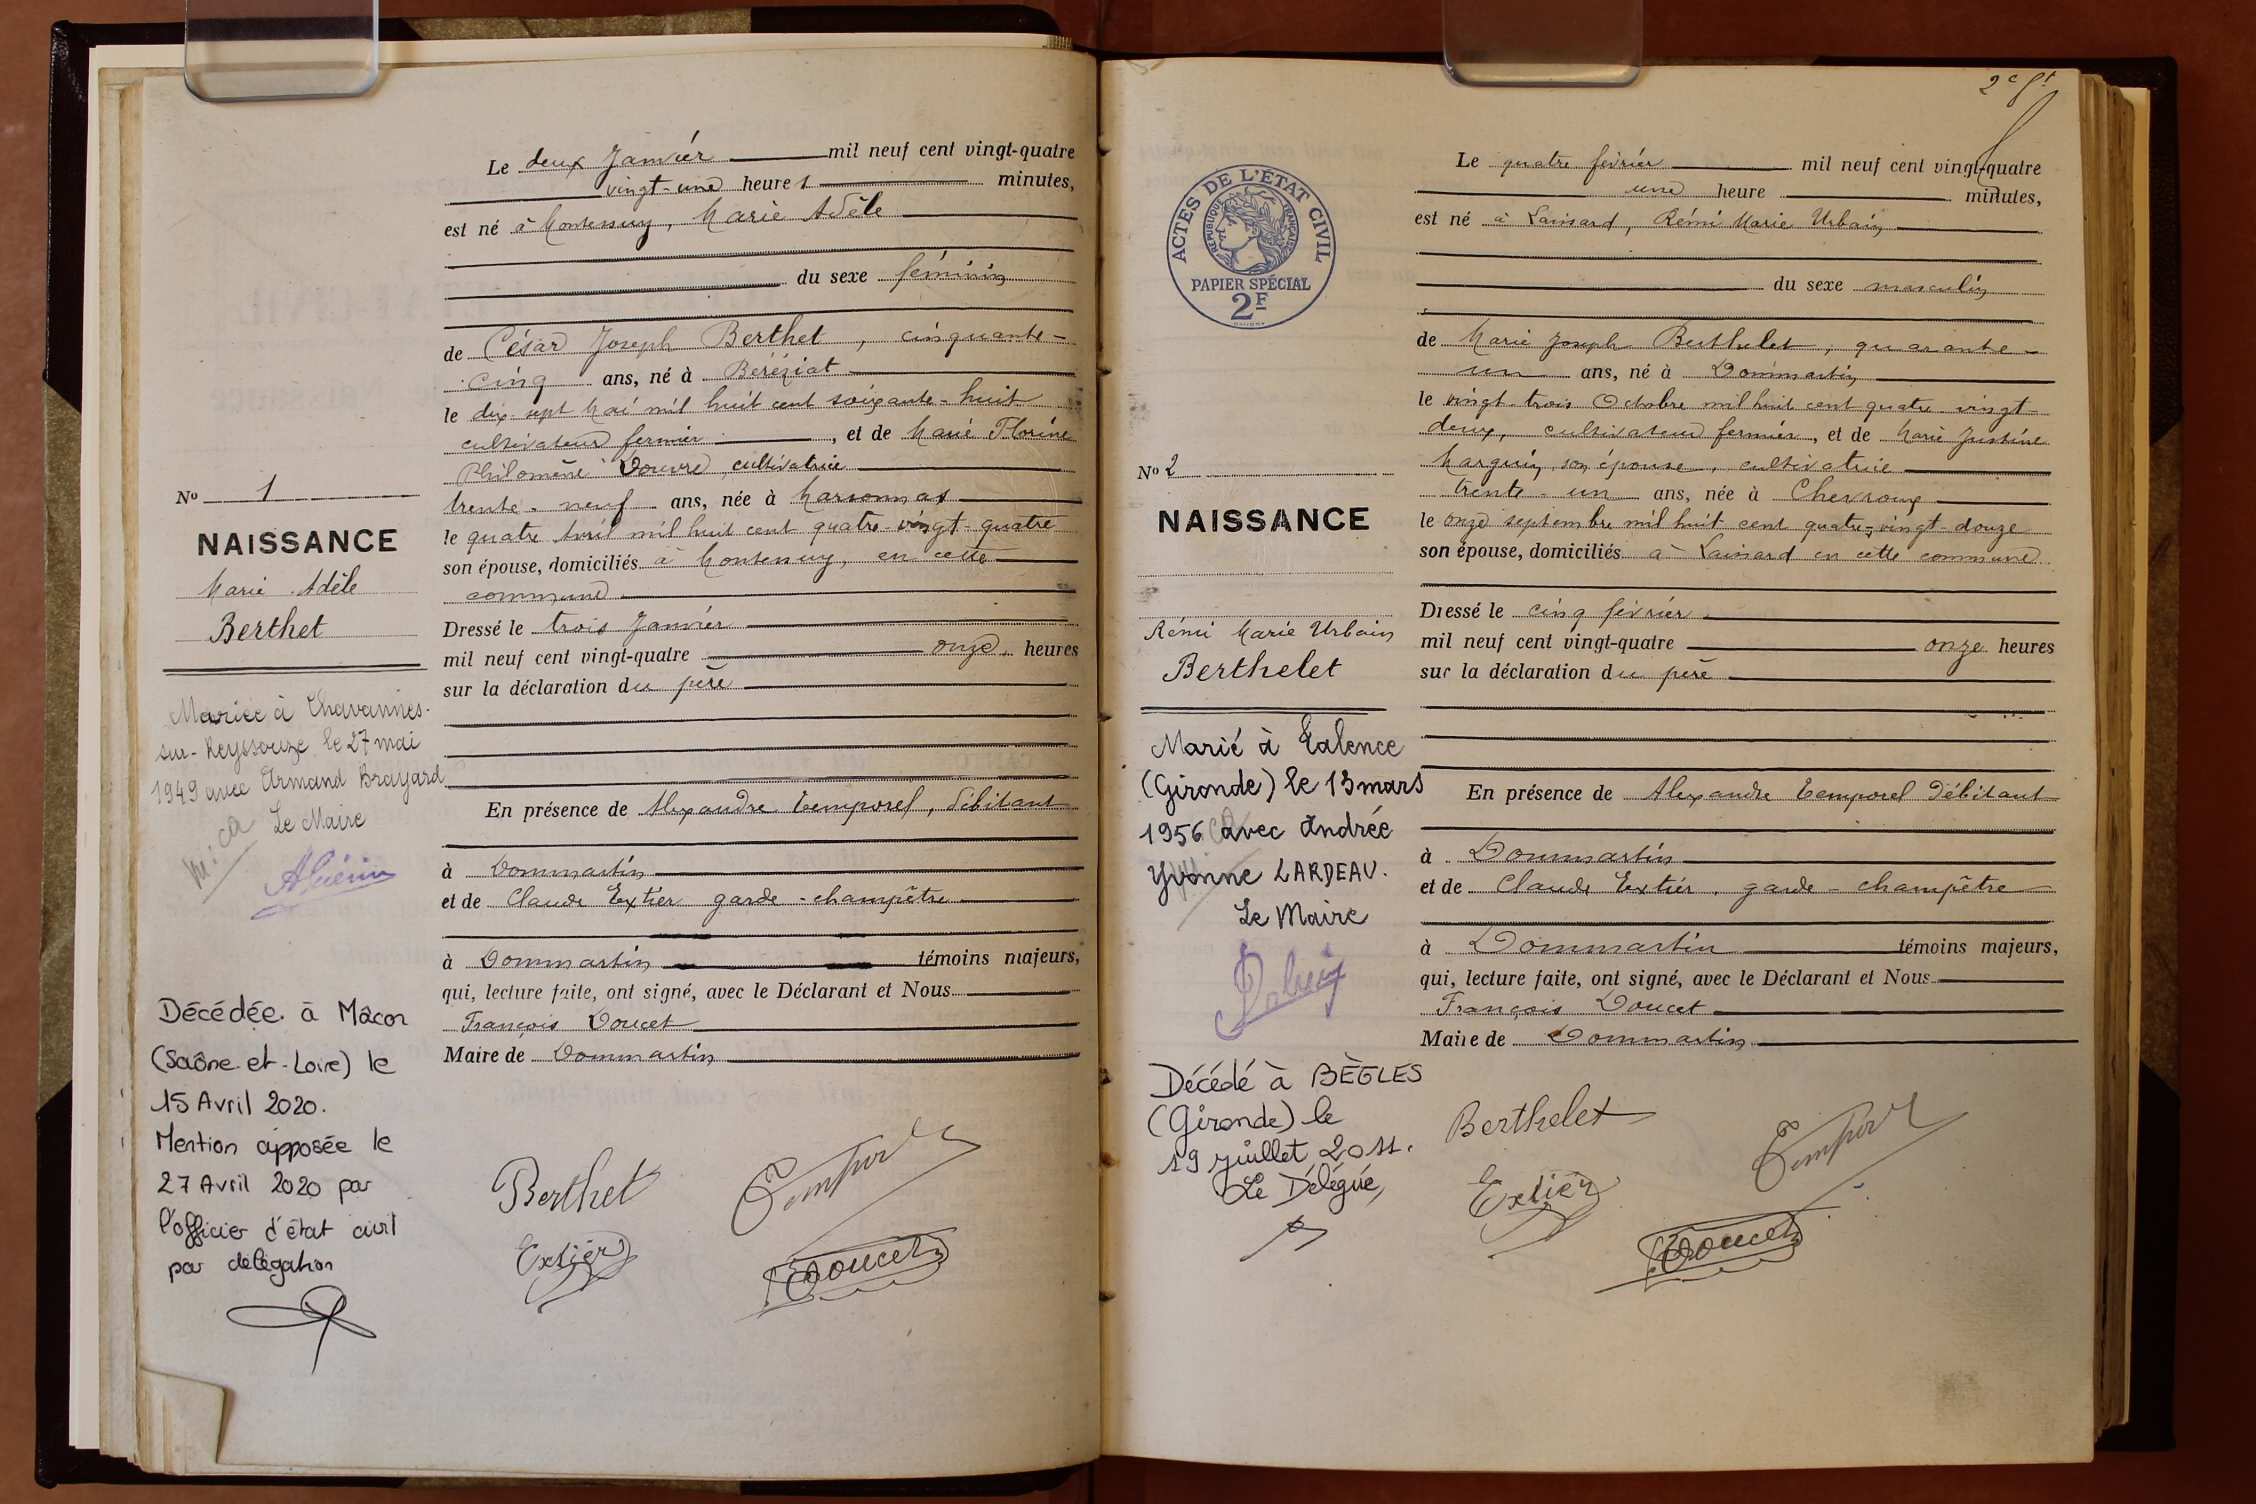 Le deux Janvier mil neuf cent vingt-quatre
vingt-une heures minutes,
est né à Montessuy, Marie Adèle
du sexe féminin
de César Joseph Berthet, cinquante-
cinq ans, né à Béréziat
le dix-sept Mai mil huit cent soixante-huit
cultivateur fermier, et de Marie Florine
Philomène Douvre, cultivatrice
trente-neuf ans, née à Marsonnas
le quatre Avril mil huit cent quatre-vingt-quatre
son épouse, domiciliés à Montessuy, en cette
commune
Dressé le trois Janvier
mil neuf cent vingt-quatre onze heures
sur la déclaration du père
En présence de Alexandre Temporel, débitant
à Dommartin
et de Claude Extier garde-champêtre
à Dommartin témoins majeurs,
qui, lecture faite, ont signé, avec le Déclarant et Nous
François Doucet
Maire de Dommartin
Berthet
Temporel
Extier
Doucet
No 1
NAISSANCE
Marie Adèle
Berthet
Mariée à Chavannes-
sur-Reyssouze le 27 mai
1949 avec Armand Brayard
Le Maire
Décédée à Mâcon
(Saône-et-Loire) le
15 Avril 2020.
Mention apposée le
27 Avril 2020 par
l'officier d'état civil
par délégation
2e ft
ACTES DE L'ÉTAT CIVIL
RÉPUBLIQUE FRANÇAISE
PAPIER SPÉCIAL
2F
Le quatre février mil neuf cent vingt-quatre
une heure minutes,
est né à Laissard, Rémi Marie Urbain
du sexe masculin
de Marie Joseph Berthelet, quarante-
un ans, né à Dommartin
le vingt-trois Octobre mil huit cent quatre-vingt-
deux, cultivateur fermier, et de Marie Justine
Marguin, son épouse, cultivatrice
trente-un ans, née à Chevroux
le onze septembre mil huit cent quatre-vingt-douze
son épouse, domiciliés à Laissard en cette commune
Dressé le cinq février
mil neuf cent vingt-quatre onze heures
sur la déclaration du père
En présence de Alexandre Temporel débitant
à Dommartin
et de Claude Extier, garde-champêtre
à Dommartin témoins majeurs,
qui, lecture faite, ont signé, avec le Déclarant et Nous
François Doucet
Maire de Dommartin
Berthelet
Temporel
Extier
Doucet
No 2
NAISSANCE
Rémi Marie Urbain
Berthelet
Marié à Talence
(Gironde) le 13 mars
1956 avec Andrée
Yvonne LARDEAU.
Le Maire
Décédé à BÈGLES
(Gironde) le
19 juillet 2011.
Le Délégué,